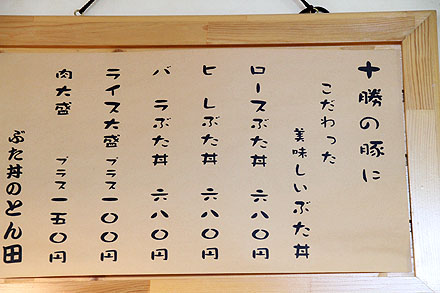 十勝の豚に
こだわった
美味しいぶた丼
ロースぶた丼 六八〇円
ヒレぶた丼 六八〇円
バラぶた丼 六八〇円
ライス大盛 プラス一〇〇円
肉大盛 プラス一五〇円
ぶた丼のとん田